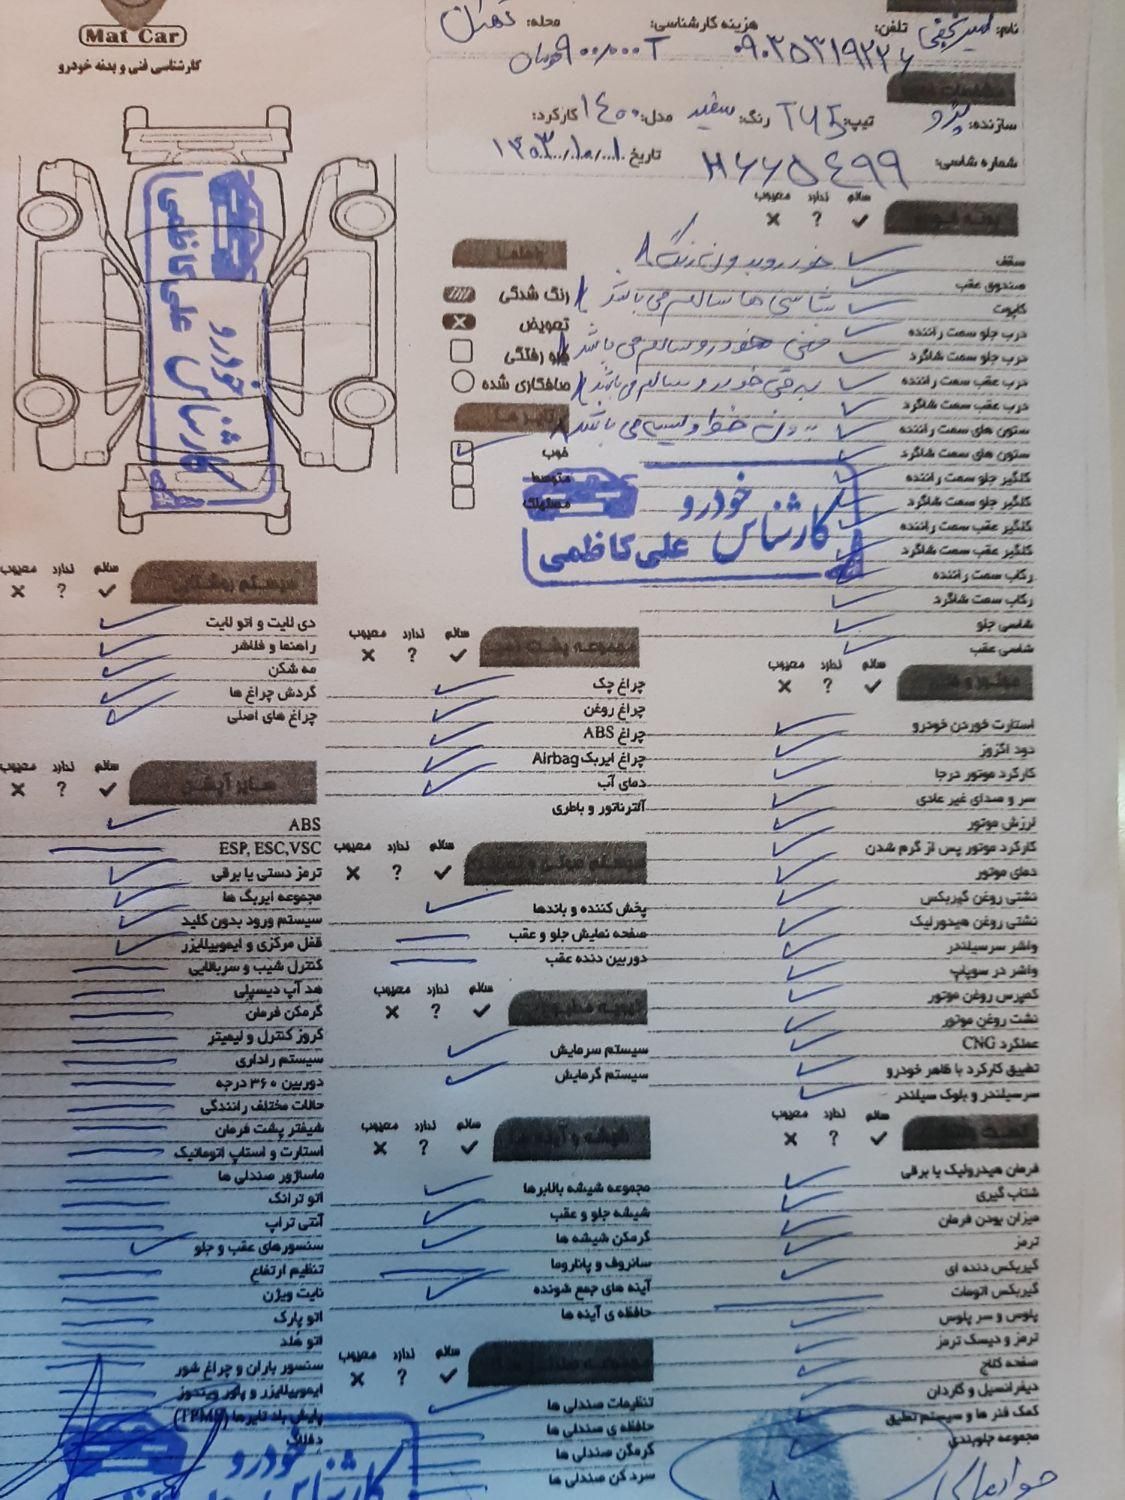 Mat Car
کارشناسی فنی و بدنه خودرو
نام: امیر نجفی تلفن: هزینه کارشناسی: محله: تهران
سازنده: پژو تیپ: TU5 رنگ: سفید مدل: ۱۴۰۰ کارکرد:
شماره شاسی: تاریخ ۱۴۰۳/۱۰/۰۱
سالم ندارد معیوب
✓ ? ×
سقف
صندوق عقب
کاپوت
درب جلو سمت راننده
درب جلو سمت شاگرد
درب عقب سمت راننده
درب عقب سمت شاگرد
ستون های سمت راننده
ستون های سمت شاگرد
گلگیر جلو سمت راننده
گلگیر جلو سمت شاگرد
گلگیر عقب سمت راننده
گلگیر عقب سمت شاگرد
رکاب سمت راننده
رکاب سمت شاگرد
شاسی جلو
شاسی عقب
خودرو بدون رنگ
شاسی ها سالم می باشد
فنی خودرو سالم می باشد
برقی خودرو سالم می باشد
راهنما
رنگ شدگی
تعویض
فرو رفتگی
صافکاری شده
خوب
متوسط
مستهلک
کارشناس خودرو
علی کاظمی
کارشناس خودرو
علی کاظمی
موتور و فنی
سالم ندارد معیوب
✓ ? ×
استارت خوردن خودرو
دود اگزوز
کارکرد موتور درجا
سر و صدای غیر عادی
لرزش موتور
کارکرد موتور پس از گرم شدن
دمای موتور
نشتی روغن گیربکس
نشتی روغن هیدرولیک
واشر سرسیلندر
واشر در سوپاپ
کمپرس روغن موتور
نشت روغن موتور
عملکرد CNG
تطبیق کارکرد با ظاهر خودرو
سرسیلندر و بلوک سیلندر
سالم ندارد معیوب
✓ ? ×
فرمان هیدرولیک یا برقی
شتاب گیری
میزان بودن فرمان
ترمز
گیربکس دنده ای
گیربکس اتومات
پلوس و سر پلوس
ترمز و دیسک ترمز
صفحه کلاج
دیفرانسیل و گاردان
کمک فنر ها و سیستم تعلیق
مجموعه جلوبندی
سالم ندارد معیوب
✓ ? ×
چراغ چک
چراغ روغن
چراغ ABS
چراغ ایربگ Airbag
دمای آب
آلترناتور و باطری
سالم ندارد معیوب
✓ ? ×
پخش کننده و باندها
صفحه نمایش جلو و عقب
دوربین دنده عقب
سالم ندارد معیوب
✓ ? ×
سیستم سرمایش
سیستم گرمایش
شیشه و آینه ها
سالم ندارد معیوب
✓ ? ×
مجموعه شیشه بالابرها
شیشه جلو و عقب
گرمکن شیشه ها
سانروف و پاناروما
آینه های جمع شونده
حافظه ی آینه ها
سالم ندارد معیوب
✓ ? ×
تنظیمات صندلی ها
حافظه ی صندلی ها
گرمکن صندلی ها
سرد کن صندلی ها
سیستم روشنایی
سالم ندارد معیوب
✓ ? ×
دی لایت و اتو لایت
راهنما و فلاشر
مه شکن
گردش چراغ ها
چراغ های اصلی
سایر آپشن
سالم ندارد معیوب
✓ ? ×
ABS
ESP, ESC,VSC
ترمز دستی یا برقی
مجموعه ایربگ ها
سیستم ورود بدون کلید
قفل مرکزی و ایموبیلایزر
کنترل شیب و سربالایی
هد آپ دیسپلی
گرمکن فرمان
کروز کنترل و لیمیتر
سیستم راداری
دوربین ۳۶۰ درجه
حالات مختلف رانندگی
شیفتر پشت فرمان
استارت و استاپ اتوماتیک
ماساژور صندلی ها
اتو ترانک
آنتی تراپ
سنسورهای عقب و جلو
تنظیم ارتفاع
نایت ویژن
اتو پارک
اتو هلد
سنسور باران و چراغ شور
ایموبیلایزر و پاور ویندوز
پایش باد تایرها (TPMS)
کارشناس خودرو